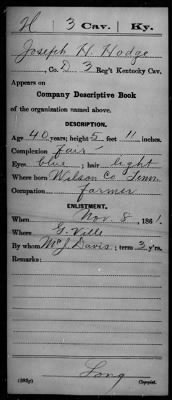 H 3 Cav. Ky.
Joseph H. Hodge
, Co. D 3 Reg't Kentucky Cav.
Appears on
Company Descriptive Book
of the organization named above.
DESCRIPTION.
Age 40 years; height 5 feet 11 inches.
Complexion fair
Eyes blue; hair light
Where born Wilson Co Tenn
Occupation farmer
ENLISTMENT.
When Nov. 8, 1861.
Where G. Ville
By whom Davis; term 3 y'rs.
Remarks:
Long
Copyist.